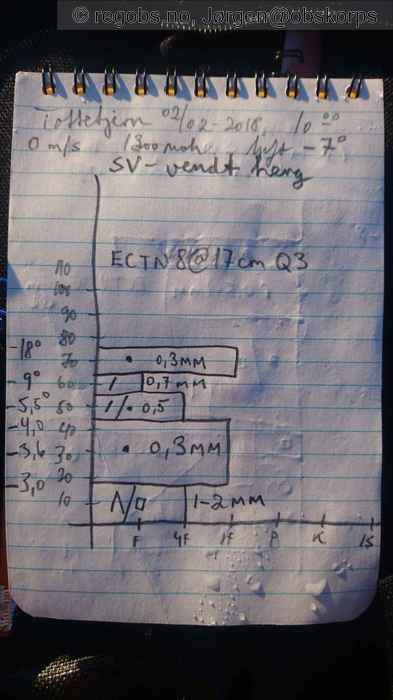 © regobs.no, Jørgen@obskorps
02/02-2018, 10 00
0 m/s 1300 moh luft -7°
SV-vendt heng
ECTN8@17cm Q3
110
100
90
80
-18° 70 • 0,3MM
-9° 60 / 0,7MM
-5,5° 50 //• 0,5
-4,0 40
-3,6 30 • 0,3MM
-3,0 20
10 Λ/□ 1-2MM
F 4F 1F P K IS